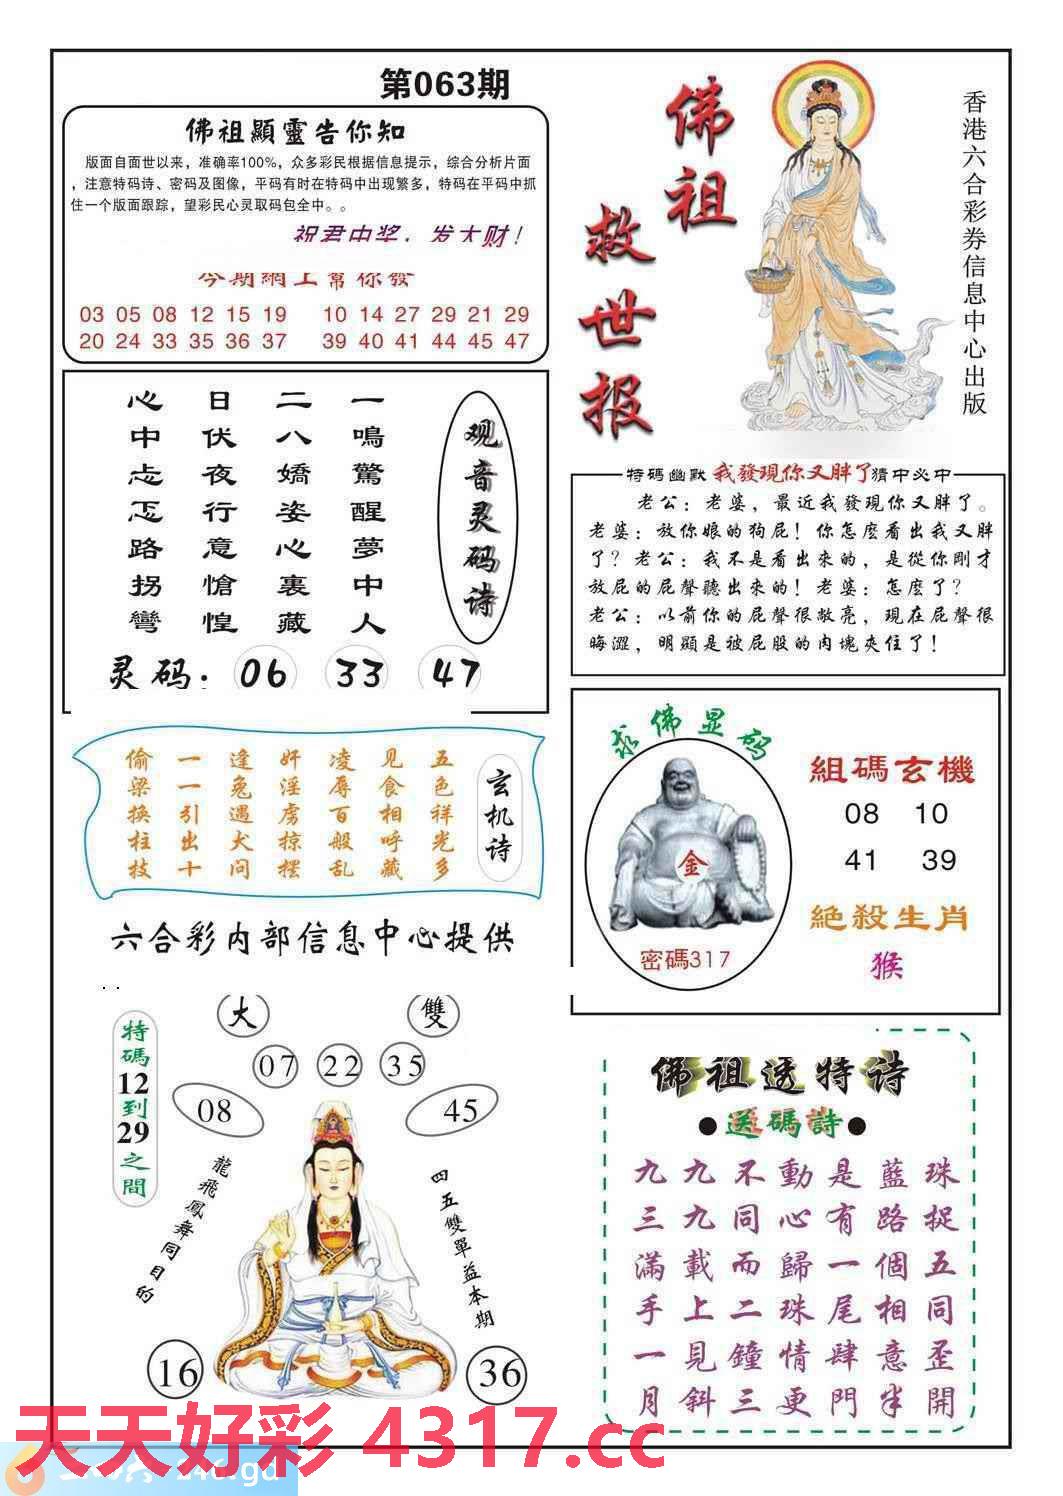 第063期
佛祖顯靈告你知
版面自面世以来，准确率100%，众多彩民根据信息提示，综合分析片面
，注意特码诗、密码及图像，平码有时在特码中出现繁多，特码在平码中抓
住一个版面跟踪，望彩民心灵取码包全中。。
祝君中奖，发大财！
今期網上幫你發
03 05 08 12 15 19 10 14 27 29 21 29
20 24 33 35 36 37 39 40 41 44 45 47
佛祖
救世报
香港六合彩券信息中心出版
观音灵码诗
一鳴驚醒夢中人
二八嬌姿心裏藏
日伏夜行意愴惶
心中忐忑路拐彎
灵码：06 33 47
特碼幽默 我發現你又胖了 猜中必中
老公：老婆，最近我發現你又胖了。
老婆：放你娘的狗屁！你怎麼看出我又胖
了？老公：我不是看出來的，是從你剛才
放屁的屁聲聽出來的！老婆：怎麼了？
老公：以前你的屁聲很敞亮，現在屁聲很
晦澀，明顯是被屁股的肉塊夾住了！
玄机诗
五色祥光多
见食相呼藏
凌辱百般乱
奸淫虏掠摆
逢兔遇犬问
一一引出十
偷梁换柱技
求佛显码
金
密碼317
組碼玄機
08 10
41 39
絕殺生肖
猴
六合彩内部信息中心提供
特碼12到29之間
大
雙
07 22 35
08
45
龍飛鳳舞同目的
四五雙單益本期
16
36
佛祖透特诗
●送碼詩●
九九不動是藍珠
三九同心有路捉
滿載而歸一個五
手上二珠尾相同
一見鐘情肆意歪
月斜三更門半開
天天好彩 4317.cc
246.gd